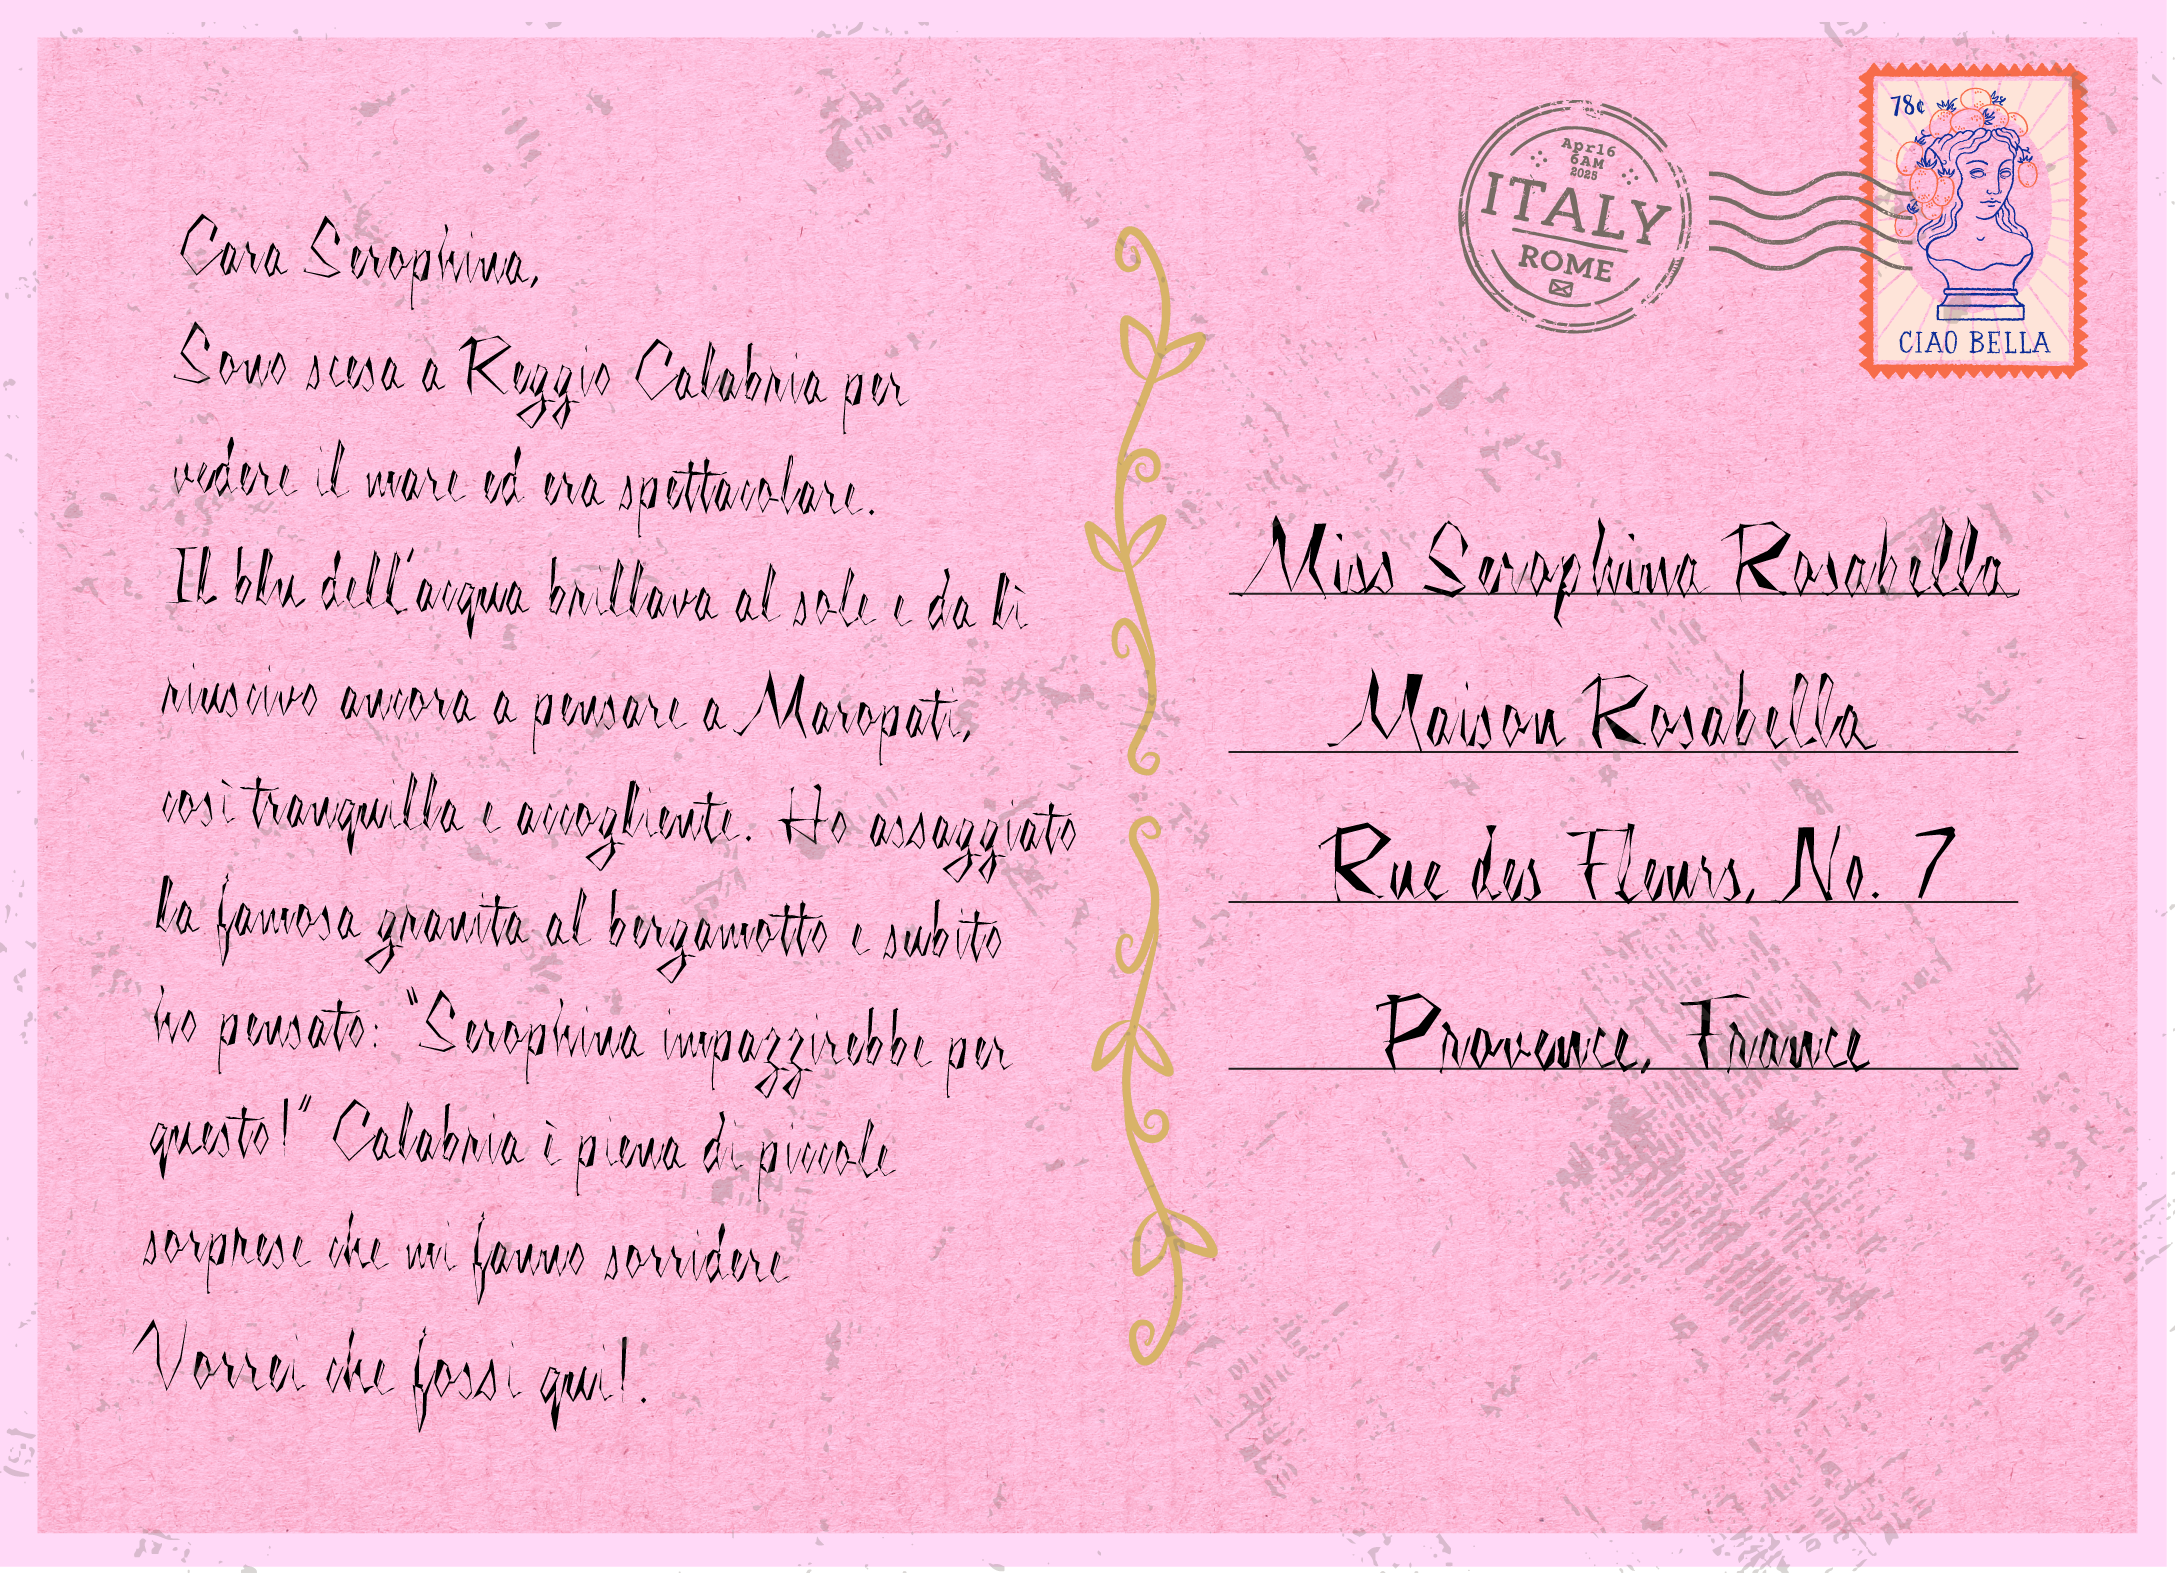 Cara Seraphina,
Sono scesa a Reggio Calabria per
vedere il mare ed era spettacolare.
Il blu dell'acqua brillava al sole e da lì
riuscivo ancora a pensare a Maropati,
così tranquilla e accogliente. Ho assaggiato
la famosa granita al bergamotto e subito
ho pensato: "Seraphina impazzirebbe per
questo!" Calabria è piena di piccole
sorprese che mi fanno sorridere
Vorrei che fossi qui!.
Apr16
6AM
2025
ITALY
ROME
78¢
CIAO BELLA
Miss Seraphina Rosabella
Maison Rosabella
Rue des Fleurs, No. 7
Provence, France